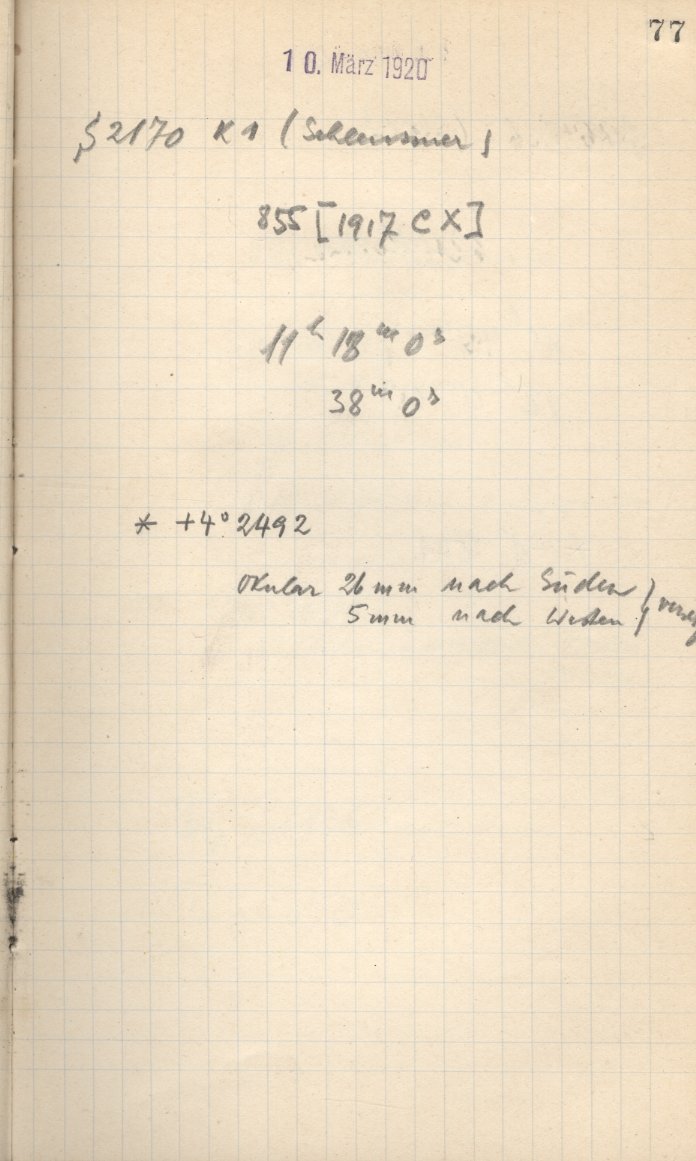 77
10. März 1920
§ 2170 K 1 (Schleussner)
855 [1917 CX]
11ʰ 18ᵐ 0ˢ
38ᵐ 0ˢ
* +4° 2492
Okular 26 mm nach Süden }
5 mm nach Westen }